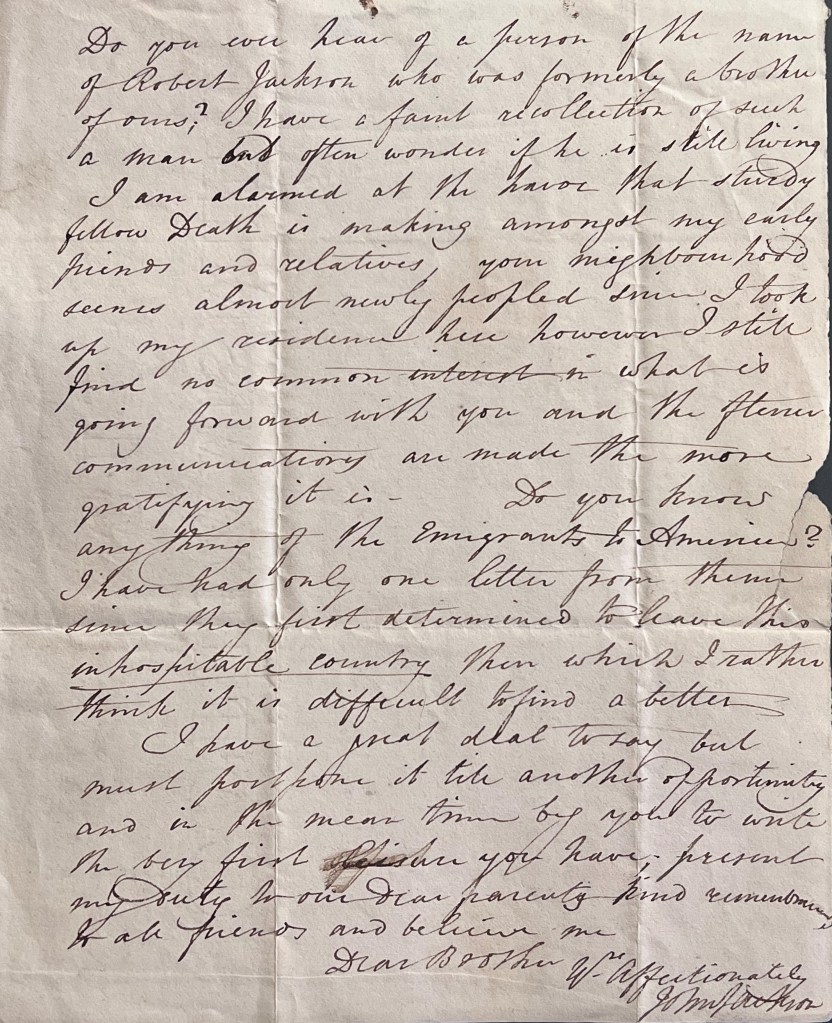 Do you ever hear of a person of the name
of Robert Jackson who was formerly a brother
of ours? I have a faint recollection of such
a man but often wonder if he is still living
I am alarmed at the havoc that sturdy
fellow Death is making amongst my early
friends and relatives, your neighbourhood
seems almost newly peopled since I took
up my residence here however I still
find no common interest in what is
going forward with you and the oftener
communications are made the more
gratifying it is - Do you know
any thing of the Emigrants to America?
I have had only one letter from them
since they first determined to leave this
inhospitable country then which I rather
think it is difficult to find a better
I have a great deal to say but
must postpone it till another opportunity
and in the mean time beg you to write
the very first leisure you have, present
my Duty to our Dear parents kind remembrances
to all friends and believe me
Dear Brother Yrs Affectionately
John Jackson